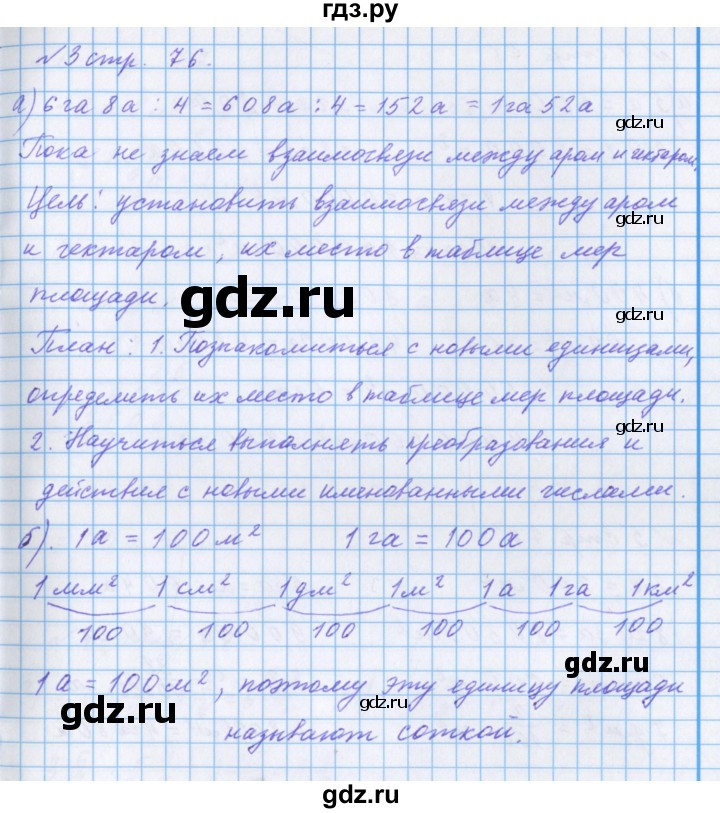 гдз.ру
№3 стр. 76.
а) 6 га 8 а : 4 = 608 а : 4 = 152 а = 1 га 52 а
gdz.ru
Пока не знаем взаимосвязи между аром и гектаром.
Цель: установить взаимосвязи между аром
и гектаром, их место в таблице мер
площади.
gdz.ru
gdz.ru
План: 1. Познакомиться с новыми единицами,
определить их место в таблице мер площади.
2. Научиться выполнять преобразования и
gdz.ru
действия с новыми именованными числами.
б). 1 а = 100 м² 1 га = 100 а
1 мм² 1 см² 1 дм² 1 м² 1 а 1 га 1 км²
100 100 100 100 100 100
gdz.ru
1 а = 100 м², поэтому эту единицу площади
gdz.ru
gdz.ru
называют соткой.
gdz.ru